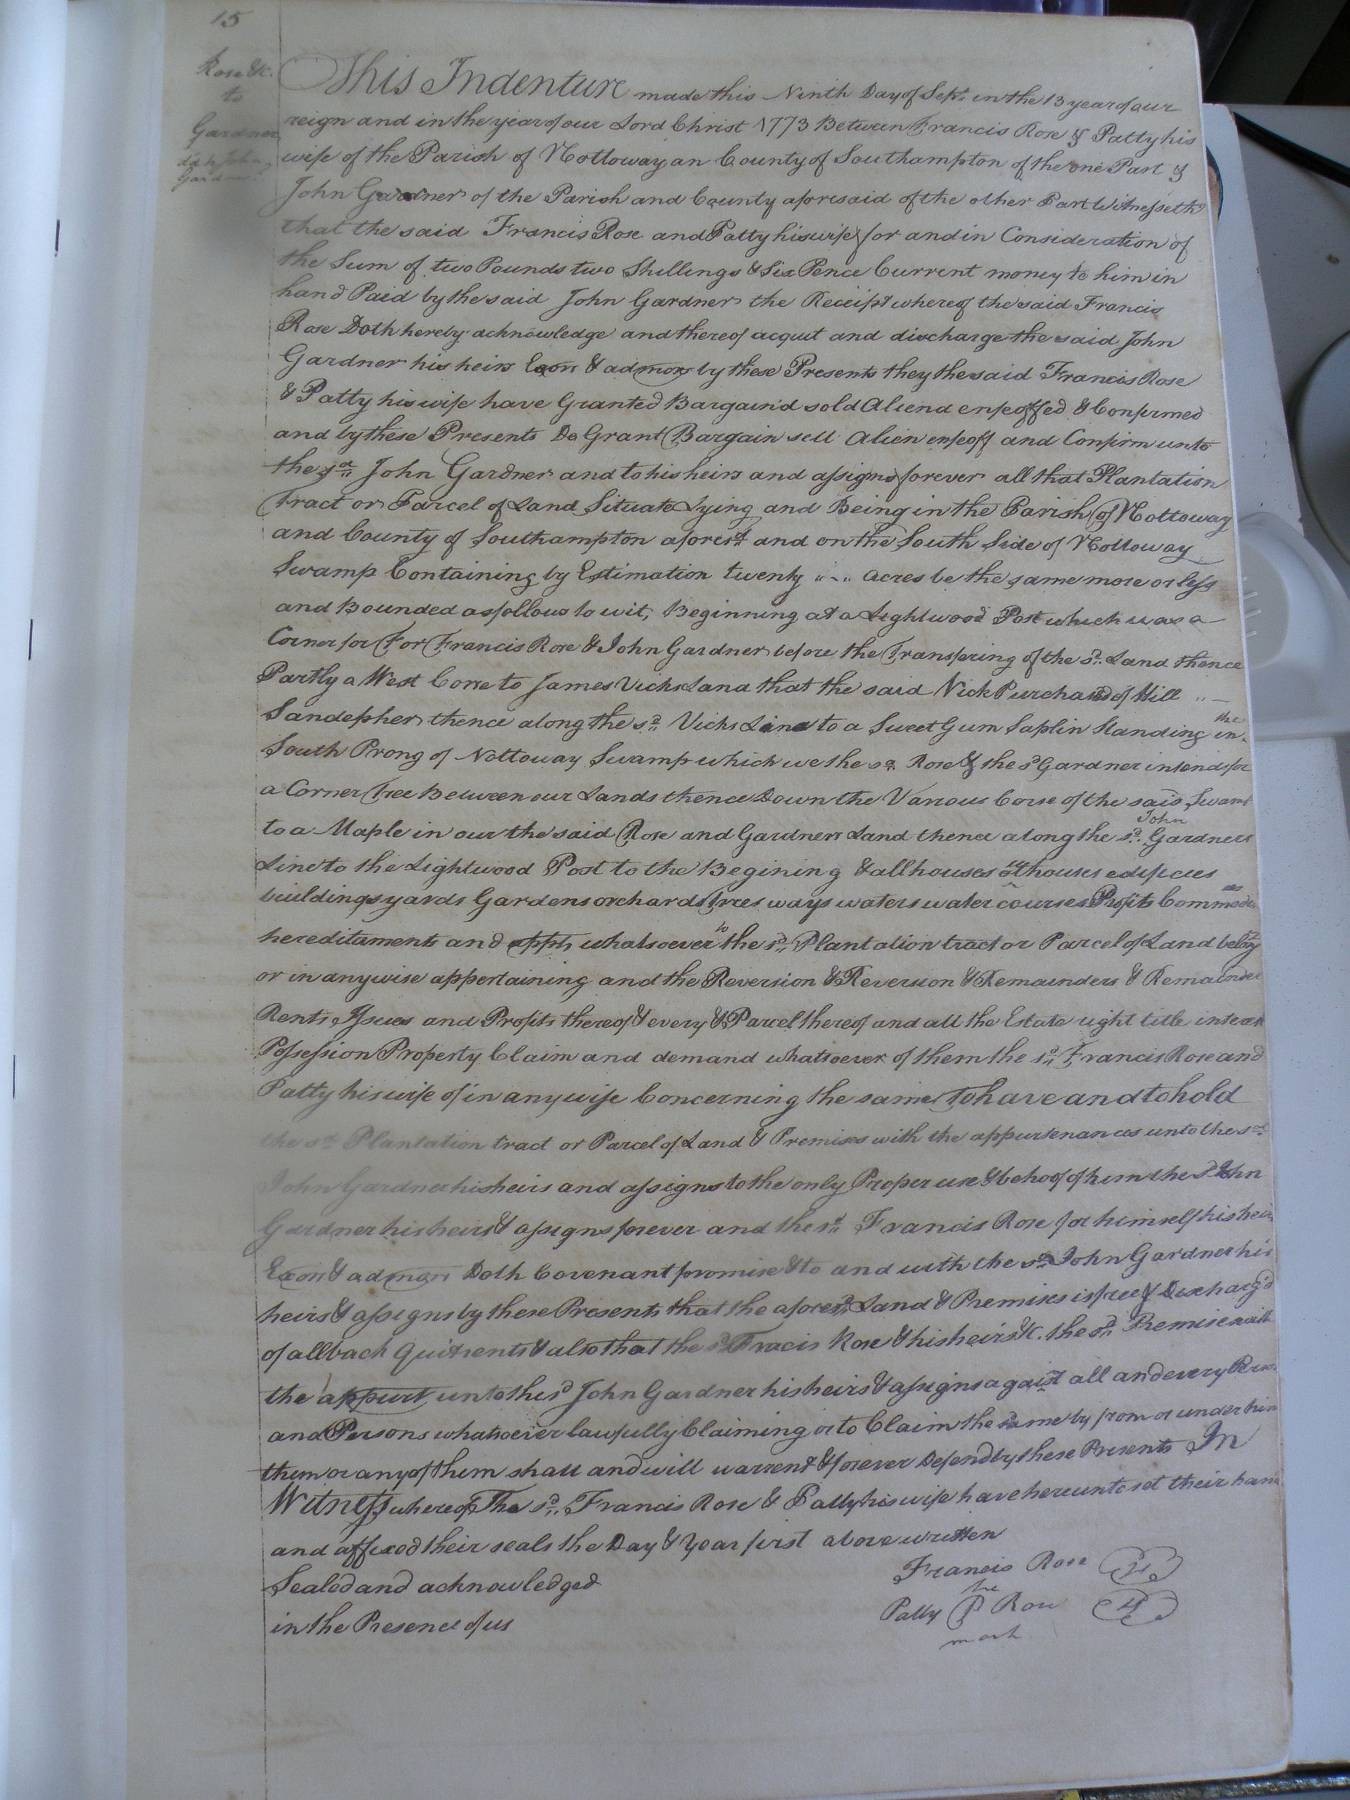 15
Rose &c.
to
Gardner
This Indenture made this Ninth Day of Sept. in the 13 year of our
reign and in the year of our Lord Christ 1773 Between Francis Rose & Patty his
wife of the Parish of Nottoway an County of Southampton of the one Part &
John Gardner of the Parish and County aforesaid of the other Part Witnesseth
that the said Francis Rose and Patty his wife for and in Consideration of
the Sum of two Pounds two Shillings & Six Pence Current money to him in
hand Paid by the said John Gardner the Receipt whereof the said Francis
Rose Doth hereby acknowledge and thereof acquit and discharge the said John
Gardner his heirs Exors & admors by these Presents they the said Francis Rose
& Patty his wife have Granted Bargain'd sold Aliend enfeoffed & Confirmed
and by these Presents Do Grant Bargain sell Alien enfeoff and Confirm unto
the sd. John Gardner and to his heirs and assigns forever all that Plantation
Tract or Parcel of Land Situate Lying and Being in the Parish of Nottoway
and County of Southampton aforesd. and on the South Side of Nottoway
Swamp Containing by Estimation twenty acres be the same more or less
and Bounded as follows to wit, Beginning at a Lightwood Post which was a
Corner for For Francis Rose & John Gardner before the Transfering of the sd. Land thence
Partly a West Corse to James Vicks Land that the said Vick Purchased of Hill
Sandepher thence along the sd. Vicks Line to a Sweet Gum Saplin Standing in the
South Prong of Nottoway Swamp which we the sd. Rose & the sd Gardner intends for
a Corner Tree Between our Lands thence Down the Various Corse of the said Swamp
to a Maple in our the said Rose and Gardners Land thence along the sd. John Gardners
Line to the Lightwood Post to the Begining & all houses outhouses edifices
buildings yards Gardens orchards trees ways waters water courses Profits Commods
hereditaments and appts whatsoever to the sd. Plantation tract or Parcel of Land belong
or in anywise appertaining and the Reversion & Reversion & Remainders & Remainder
Rents Issues and Profits thereof & every & Parcel thereof and all the Estate right title interest
Possession Property Claim and demand whatsoever of them the sd. Francis Rose and
Patty his wife of in any wise Concerning the same To have and to hold
the sd. Plantation tract or Parcel of Land & Premises with the appurtenances unto the sd.
John Gardner his heirs and assigns to the only Proper use & behoof of him the sd John
Gardner his heirs & assigns forever and the sd. Francis Rose for himself his heirs
Exors & admors Doth Covenant promise & to and with the sd. John Gardner his
heirs & assigns by these Presents that the aforesd. Land & Premises is free & Discharg'd
of all back Quitrents & also that the sd Fracis Rose & his heirs &c. the sd. Premises with
the appurt unto the sd John Gardner his heirs & assigns against all and every Person
and Persons whatsoever lawfully Claiming or to Claim the same by from or under him
them or any of them shall and will warrent & forever Defend by these Presents In
Witness whereof The sd. Francis Rose & Patty his wife have hereunto set their hand
and affixed their seals the Day & Year first above written
Sealed and acknowledged
in the Presence of us
Francis Rose
her
Patty P Rose
mark